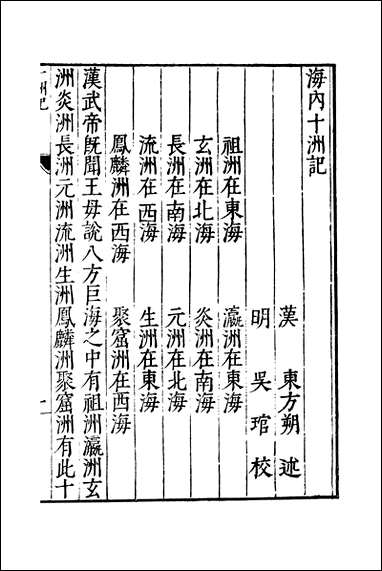 海內十洲記
漢　東方朔　述
明　吳琯　校
祖洲在東海　瀛洲在東海
玄洲在北海　炎洲在南海
長洲在南海　元洲在北海
流洲在西海　生洲在東海
鳳麟洲在西海　聚窟洲在西海
漢武帝旣聞王母說八方巨海之中有祖洲瀛洲玄
洲炎洲長洲元洲流洲生洲鳳麟洲聚窟洲有此十
洲記